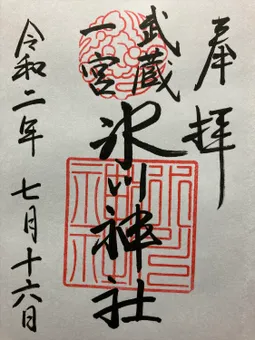 奉拝
武蔵
一宮
氷川神社
令和二年 七月十六日
氷川
神社